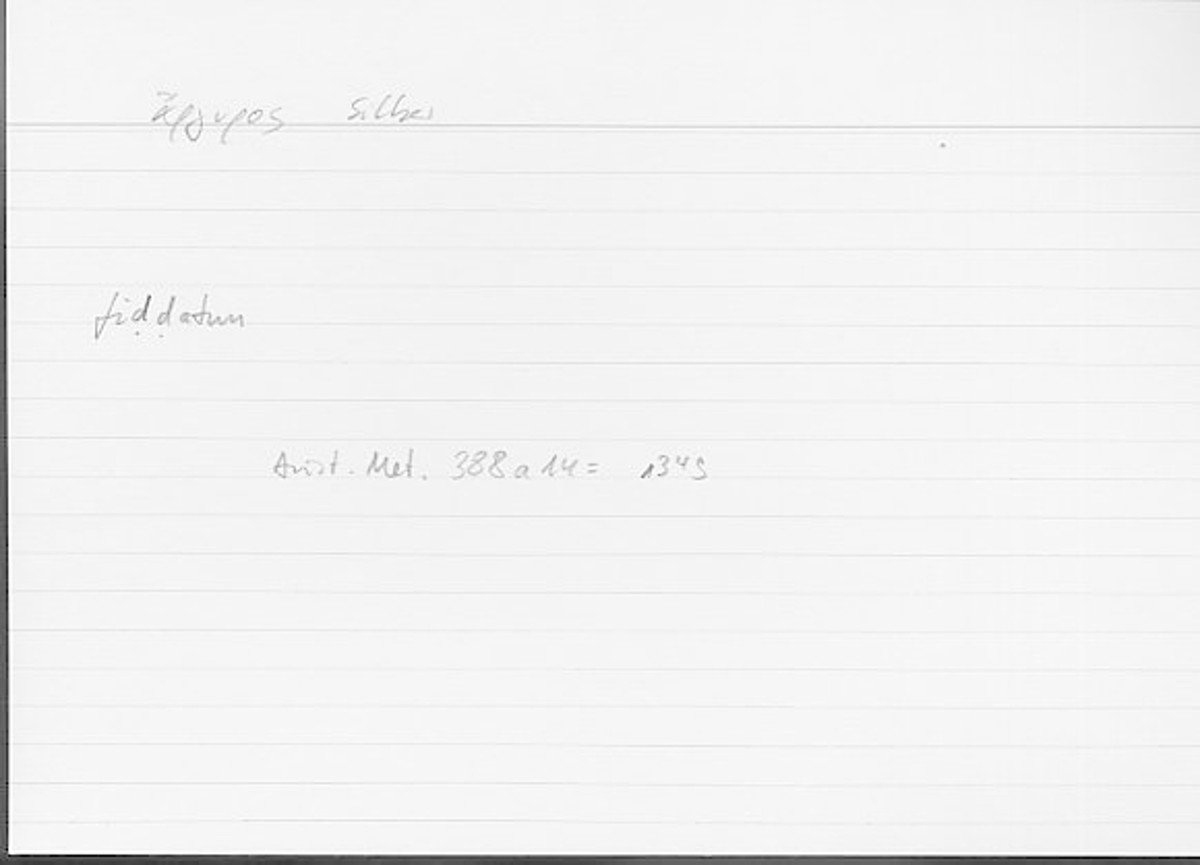 ἄργυρος Silber
fiḍḍatun
Arist. Met. 388a14 = 1345